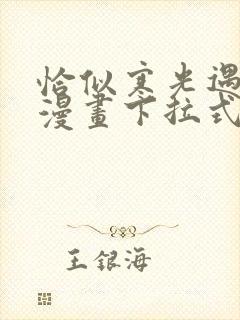 恰似寒光遇
漫畫下拉式
王銀海